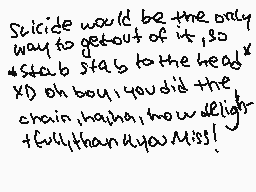 Suicide would be the only
way to get out of it, so
*stab stab to the head*
XD oh boy, you did the
chain, haha, how deligh-
tfull, thank you Miss!